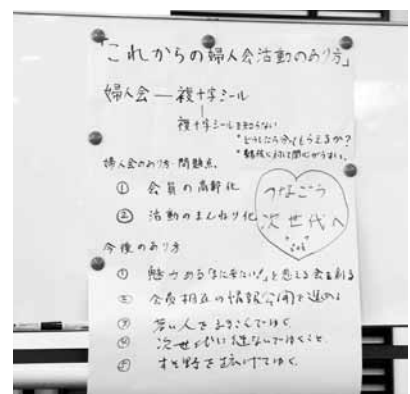 「これからの婦人会活動のあり方」
婦人会 — 複十字シール
複十字シールを知らない
・どうしたら分ってもらえるか?
・結核に対して関心がうすい。
婦人会のあり方・問題点
① 会員の高齢化
② 活動のまんねり化
つなごう
次世代へ
今後のあり方
① 魅力ある「また来たい!」と思える会を創る
② 会員相互の情報公開を進める
③ 若い人をまきこんでゆく
④ 次世代に継ないでゆくこと
⑤ すそ野を拡げてゆく